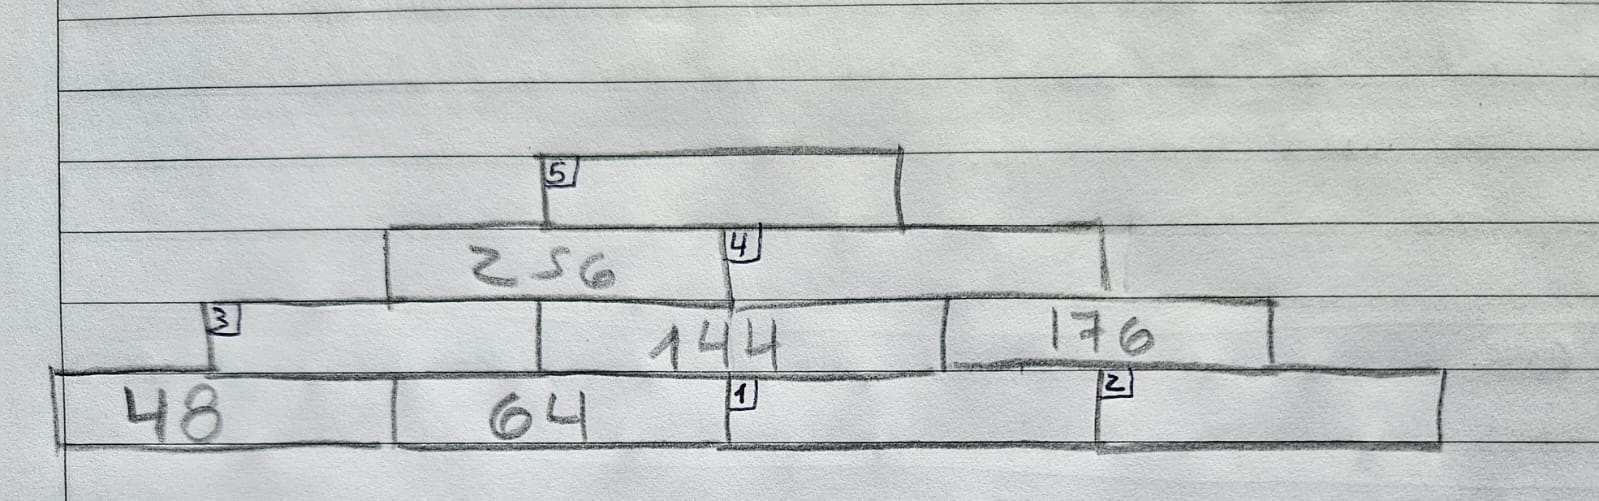 5
256 4
3 144 176
48 64 1 2